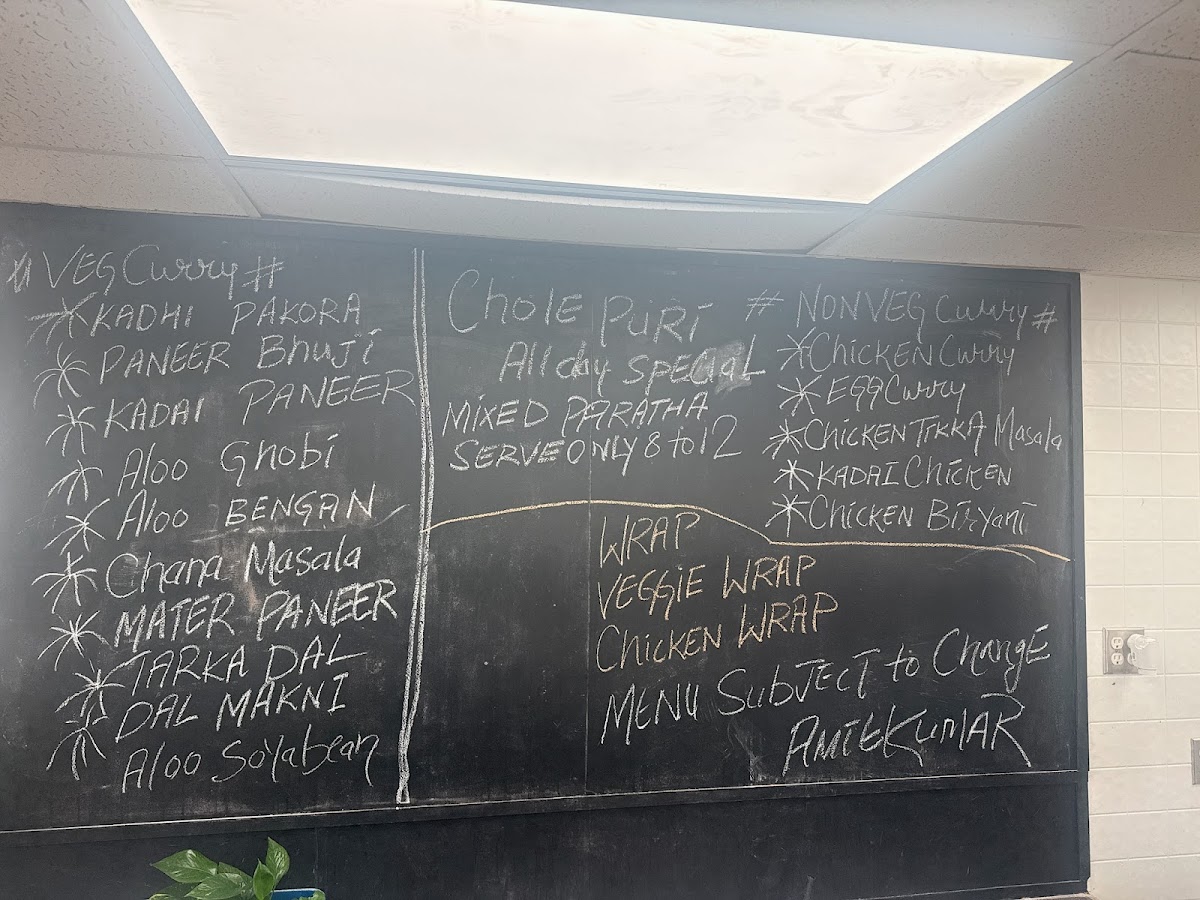 # VEG Curry #
* KADHI PAKORA
* PANEER BhuJi
* KADAI PANEER
* Aloo Ghobi
* Aloo BENGAN
* Chana Masala
* MATER PANEER
* TARKA DAL
* DAL MAKNI
* Aloo Soyabean
Chole PURI
All day SPECIAL
MIXED PARATHA
SERVE ONLY 8 to 12
# NONVEG Curry #
* CHICKEN Curry
* EGG Curry
* CHICKEN TIKKA Masala
* KADAI CHICKEN
* CHICKEN BIRYANI
WRAP
VEGGIE WRAP
CHICKEN WRAP
MENU SUBJECT to CHANGE
KUMAR